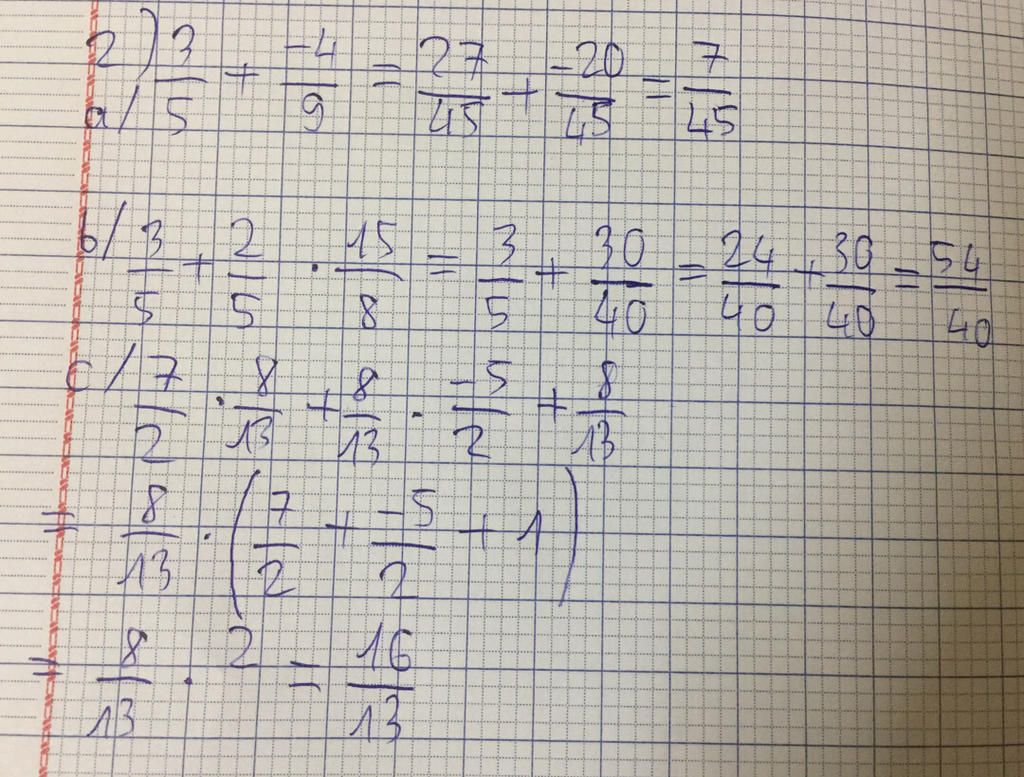 2) a/ 3/5 + -4/9 = 27/45 + -20/45 = 7/45
b/ 3/5 + 2/5 · 15/8 = 3/5 + 30/40 = 24/40 + 30/40 = 54/40
c/ 7/2 · 8/13 + 8/13 · -5/2 + 8/13
= 8/13 · (7/2 + -5/2 + 1)
= 8/13 · 2 = 16/13